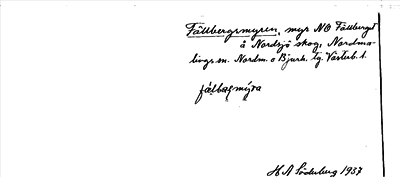 Fällbergsmyren, myr NO Fällberget
å Nordsjö skog, Nordma-
lings sn. Nordm. o Bjurh. tg. Västerb. l.
fä̀lbæ̀rsmýra
H A Söderberg 1937